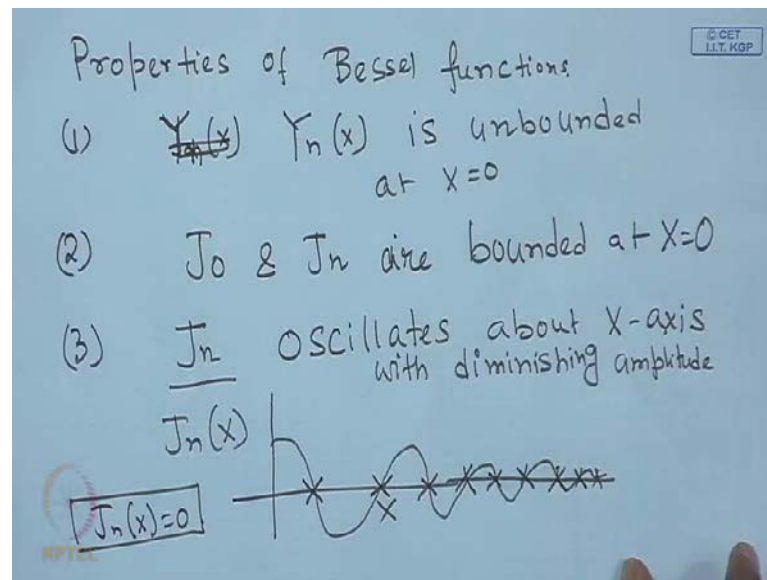 Properties of Bessel functions
© CET
I.I.T. KGP
(1) Yn(x) Yn(x) is unbounded
at x=0
(2) J0 & Jn are bounded at x=0
(3) Jn oscillates about x-axis
with diminishing amplitude
Jn(x)
x
Jn(x)=0
NPTEL